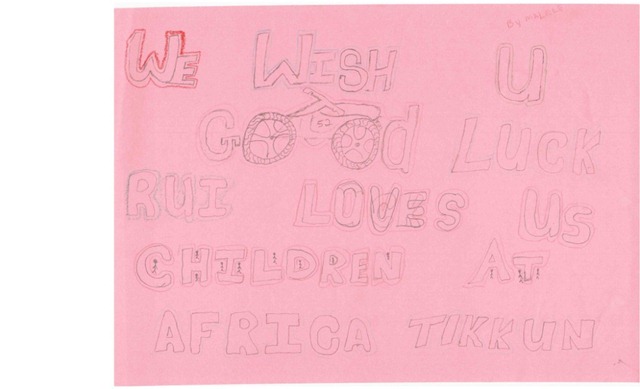 BY
WE WISH U
GOOd LUCK
RUI LOVES US
CHILDREN AT
AFRICA TIKKUN